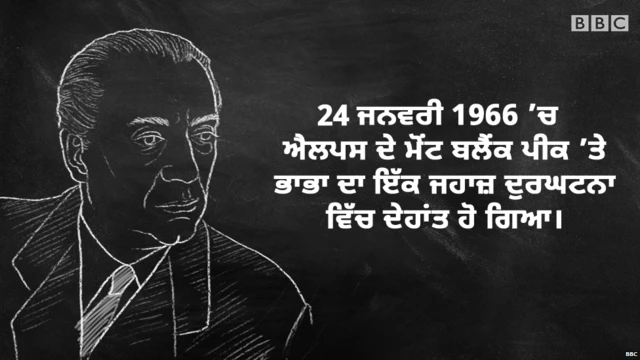 BBC
24 ਜਨਵਰੀ 1966 ’ਚ
ਐਲਪਸ ਦੇ ਮੋਂਟ ਬਲੈਂਕ ਪੀਕ ’ਤੇ
ਭਾਭਾ ਦਾ ਇੱਕ ਜਹਾਜ਼ ਦੁਰਘਟਨਾ
ਵਿੱਚ ਦੇਹਾਂਤ ਹੋ ਗਿਆ।
BBC